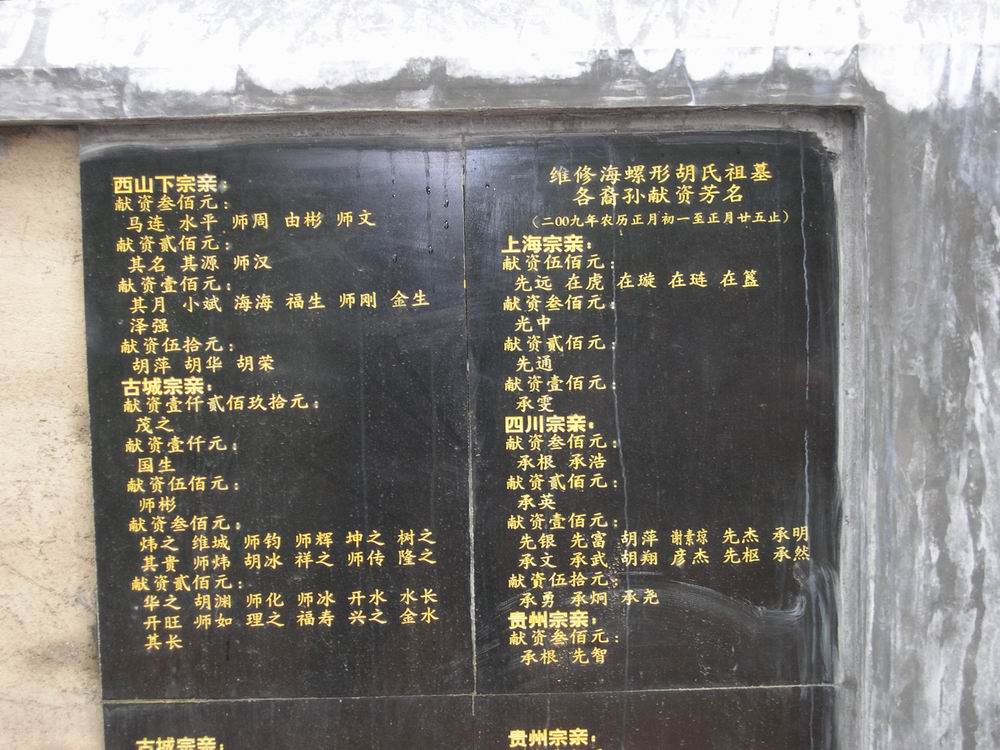 维修海螺形胡氏祖墓
各裔孙献资芳名
（二00九年农历正月初一至正月廿五止）
上海宗亲：
献资伍佰元：
先远 在虎 在璇 在琏 在簋
献资叁佰元：
光中
献资贰佰元：
先通
献资壹佰元：
承雯
四川宗亲：
献资叁佰元：
承根 承浩
献资贰佰元：
承英
献资壹佰元：
先银 先富 胡萍 谢素琼 先杰 承明
承文 承武 胡翔 彦杰 先枢 承然
献资伍拾元：
承勇 承炯 承尧
贵州宗亲：
献资叁佰元：
承根 先智
贵州宗亲：
西山下宗亲：
献资叁佰元：
马连 水平 师周 由彬 师文
献资贰佰元：
其名 其源 师汉
献资壹佰元：
其月 小斌 海海 福生 师刚 金生
泽强
献资伍拾元：
胡萍 胡华 胡荣
古城宗亲：
献资壹仟贰佰玖拾元：
茂之
献资壹仟元：
国生
献资伍佰元：
师彬
献资叁佰元：
炜之 维城 师钧 师辉 坤之 树之
其贵 师炜 胡冰 祥之 师传 隆之
献资贰佰元：
华之 胡渊 师化 师冰 开水 水长
开旺 师如 理之 福寿 兴之 金水
其长
古城宗亲：